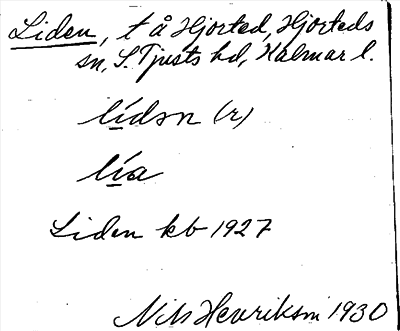 Liden, t å Hjorted, Hjorteds
sn, S. Tjusts hd, Kalmar l.
lidsn (r)
lia
Liden kb 1927
Nils Henriksm 1930